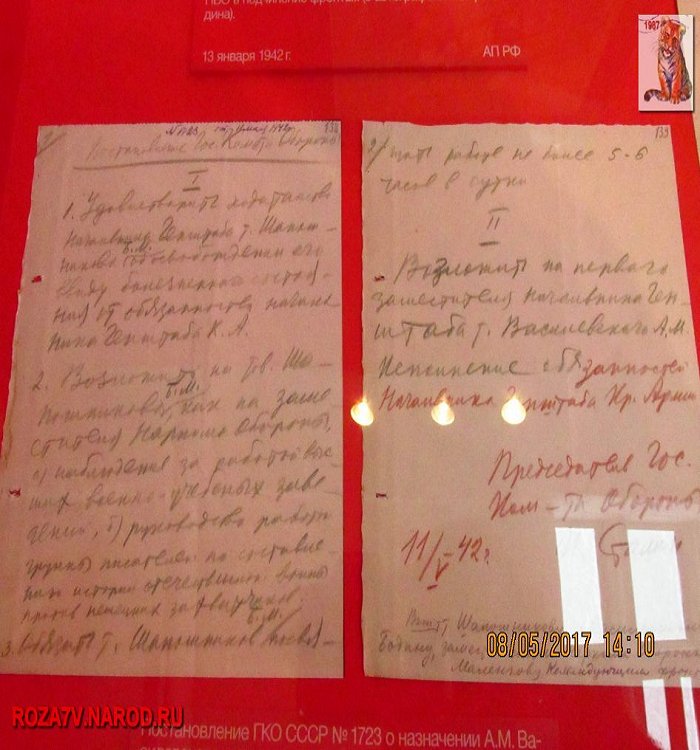 дина).
13 января 1942 г. АП РФ
1907
138
Постановление Гос. Ком-та Обороны
I
1. Удовлетворить ходатайство
начальника Генштаба т. Шапош-
никова Б.М. об освобождении его
ввиду болезненного состоя-
ния от обязанностей началь-
ника Генштаба К. А.
2. Возложить на тов. Ша-
пошникова Б.М., как на заме-
стителя Наркома Обороны,
а) наблюдение за работой выс-
ших военно-учебных заве-
дений, б) руководство работой
группы писателей по составле-
нию истории отечественной войны
против немецких захватчиков.
3. Обязать т. Шапошникова Б.М.
139
2) щать работе не более 5-6
часов в сутки
II
Возложить на первого
заместителя начальника Ген-
штаба т. Василевского А.М.
исполнение обязанностей
Начальника Генштаба Кр. Армии
Председатель Гос.
Ком-та Обороны
11/V-42 г. И. Сталин
Шапошникову
Бодину
Маленкову Командующим
08/05/2017 14:10
ROZA7V.NAROD.RU
Постановление ГКО СССР № 1723 о назначении А.М. Ва-